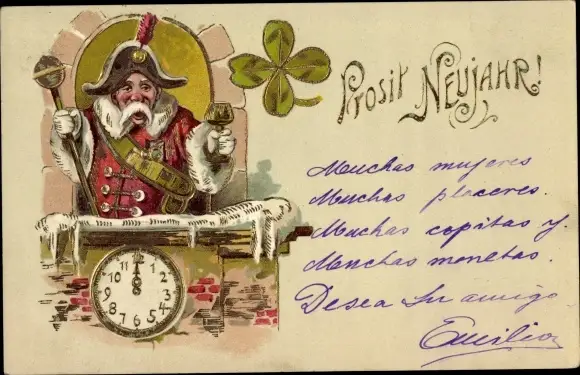 Prosit Neujahr!
Muchas mujeres
Muchos placeres.
Muchas copitas y.
Munchas monetas.
Desea su amigo
Emilio
11 12 1 2 3 4 5 6 7 8 9 10